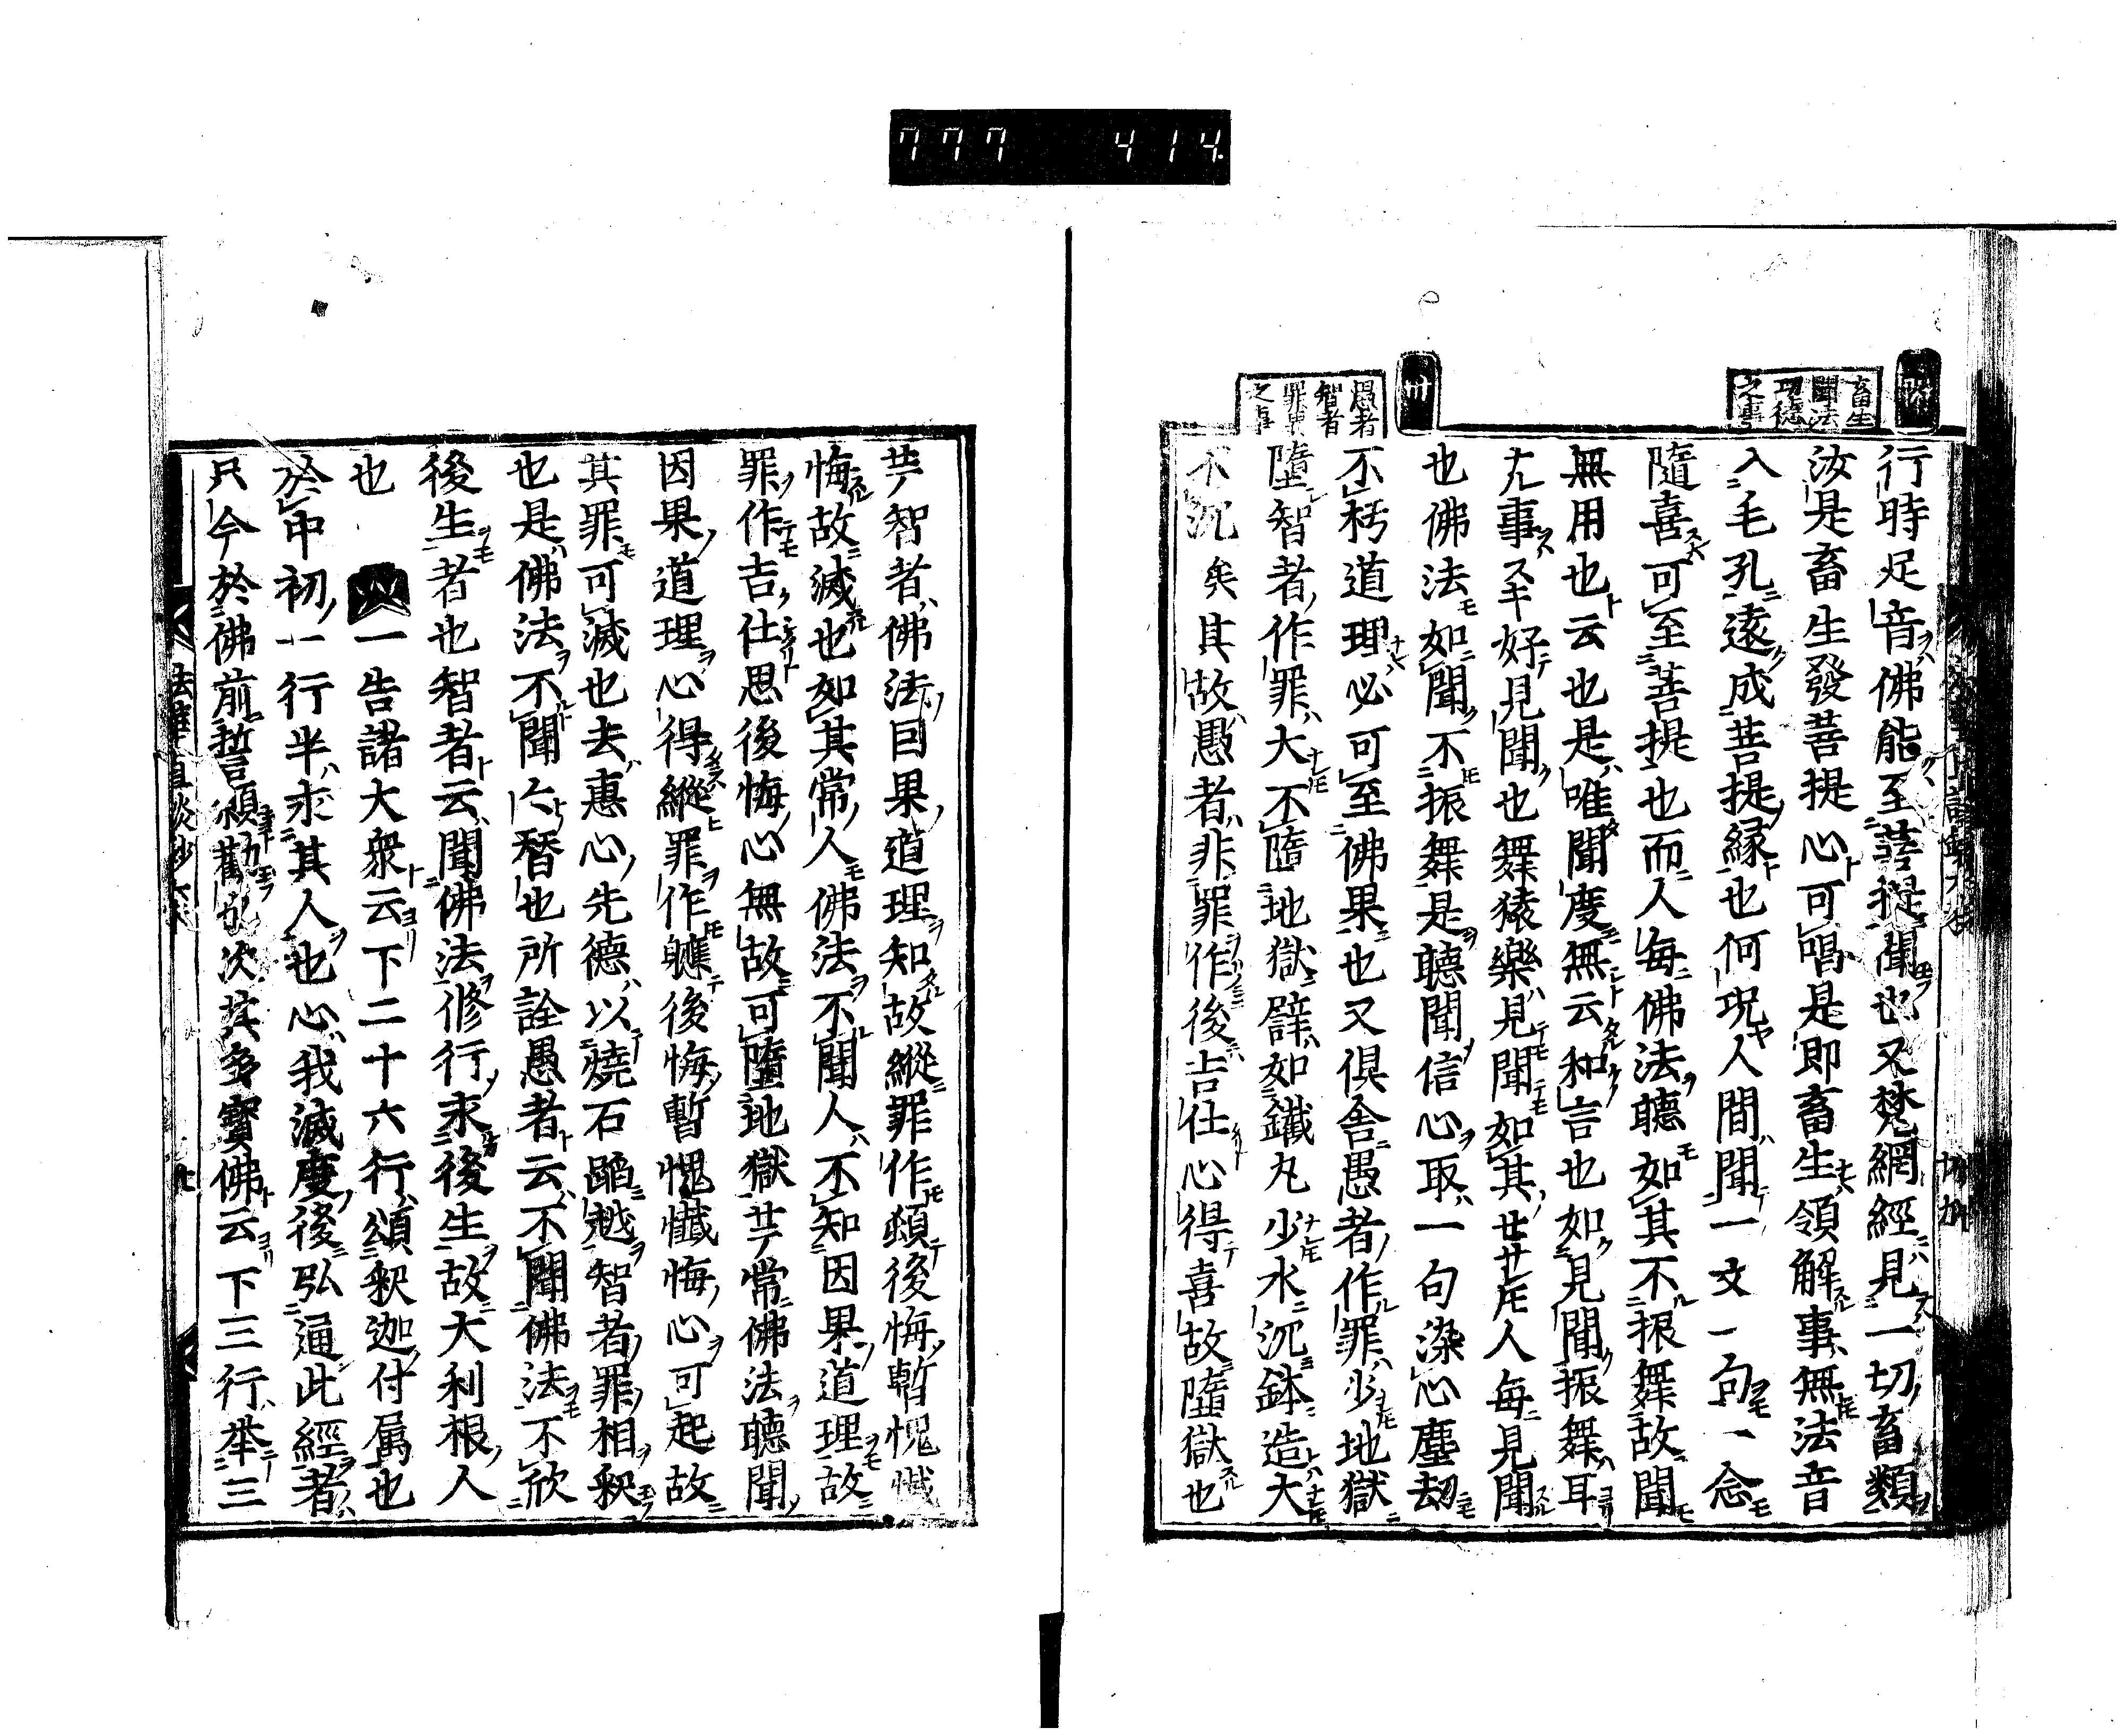 777 414
畜生
聞法
功徳
之事
行時足音佛能至菩提聞也又梵網經見一切畜類
汝是畜生發菩提心可唱是即畜生領解事無法音
入毛孔遠成菩提縁也何況人間聞一文一句一念
隨喜可至菩提也而人毎佛法聽如其不振舞故聞
無用也云也是唯聞度無云和言也如見聞振舞耳
事好見聞也舞猿樂見聞如其人毎見聞
也佛法如聞不振舞是聽聞信心取一句染心塵劫
愚者
智者
罪
之事
不朽道理必可至佛果也又倶舍愚者作罪少地獄
墮智者作罪大不墮地獄辟如鐵丸少水沉鉢造大
不沉矣其故愚者非罪作後吉仕心得喜故墮獄也
智者佛法因果道理知故縱罪作頻後悔暫愧懺
悔故滅也如其常人佛法不聞人不知因果道理故
罪作吉仕思後悔心無故可墮地獄常佛法聽聞
因果道理心得縱罪作軈後悔暫愧懺悔心可起故
其罪可滅也去惠心先德以燒石蹈越智者罪相釈
也是佛法不聞也所詮愚者云不聞佛法不欣
後生者也智者云聞佛法修行求後生故大利根人
也 一告諸大衆云下二十六行頌釈迦付属也
於中初一行半求其人也心我滅度後弘通此經者
只今於佛前誓願勸次其多寳佛云下三行举三